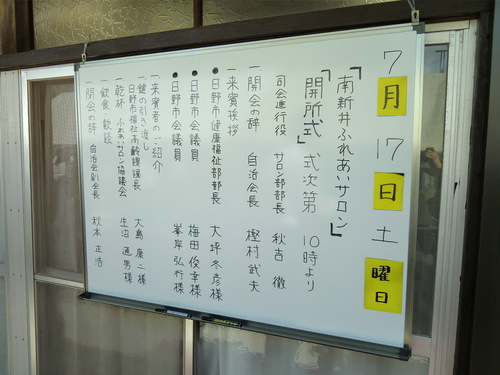 7月17日土曜日
「南新井ふれあいサロン」
「開所式」式次第 10時より
司会進行役 サロン部部長 秋吉 徹
一開会の辞 自治会長 樫村 武夫
一来賓挨拶
●日野市健康福祉部部長 大坪冬彦様
●日野市会議員 梅田俊幸様
●日野市会議員 峯岸弘行様
一来賓者のご紹介
一鍵の引き渡し
日野市福祉高齢課課長 大島康二様
一乾杯 ふれあいサロン協議会 生沼 通男様
一飲食 歓談
一閉会の辞 自治会副会長 秋本 正浩